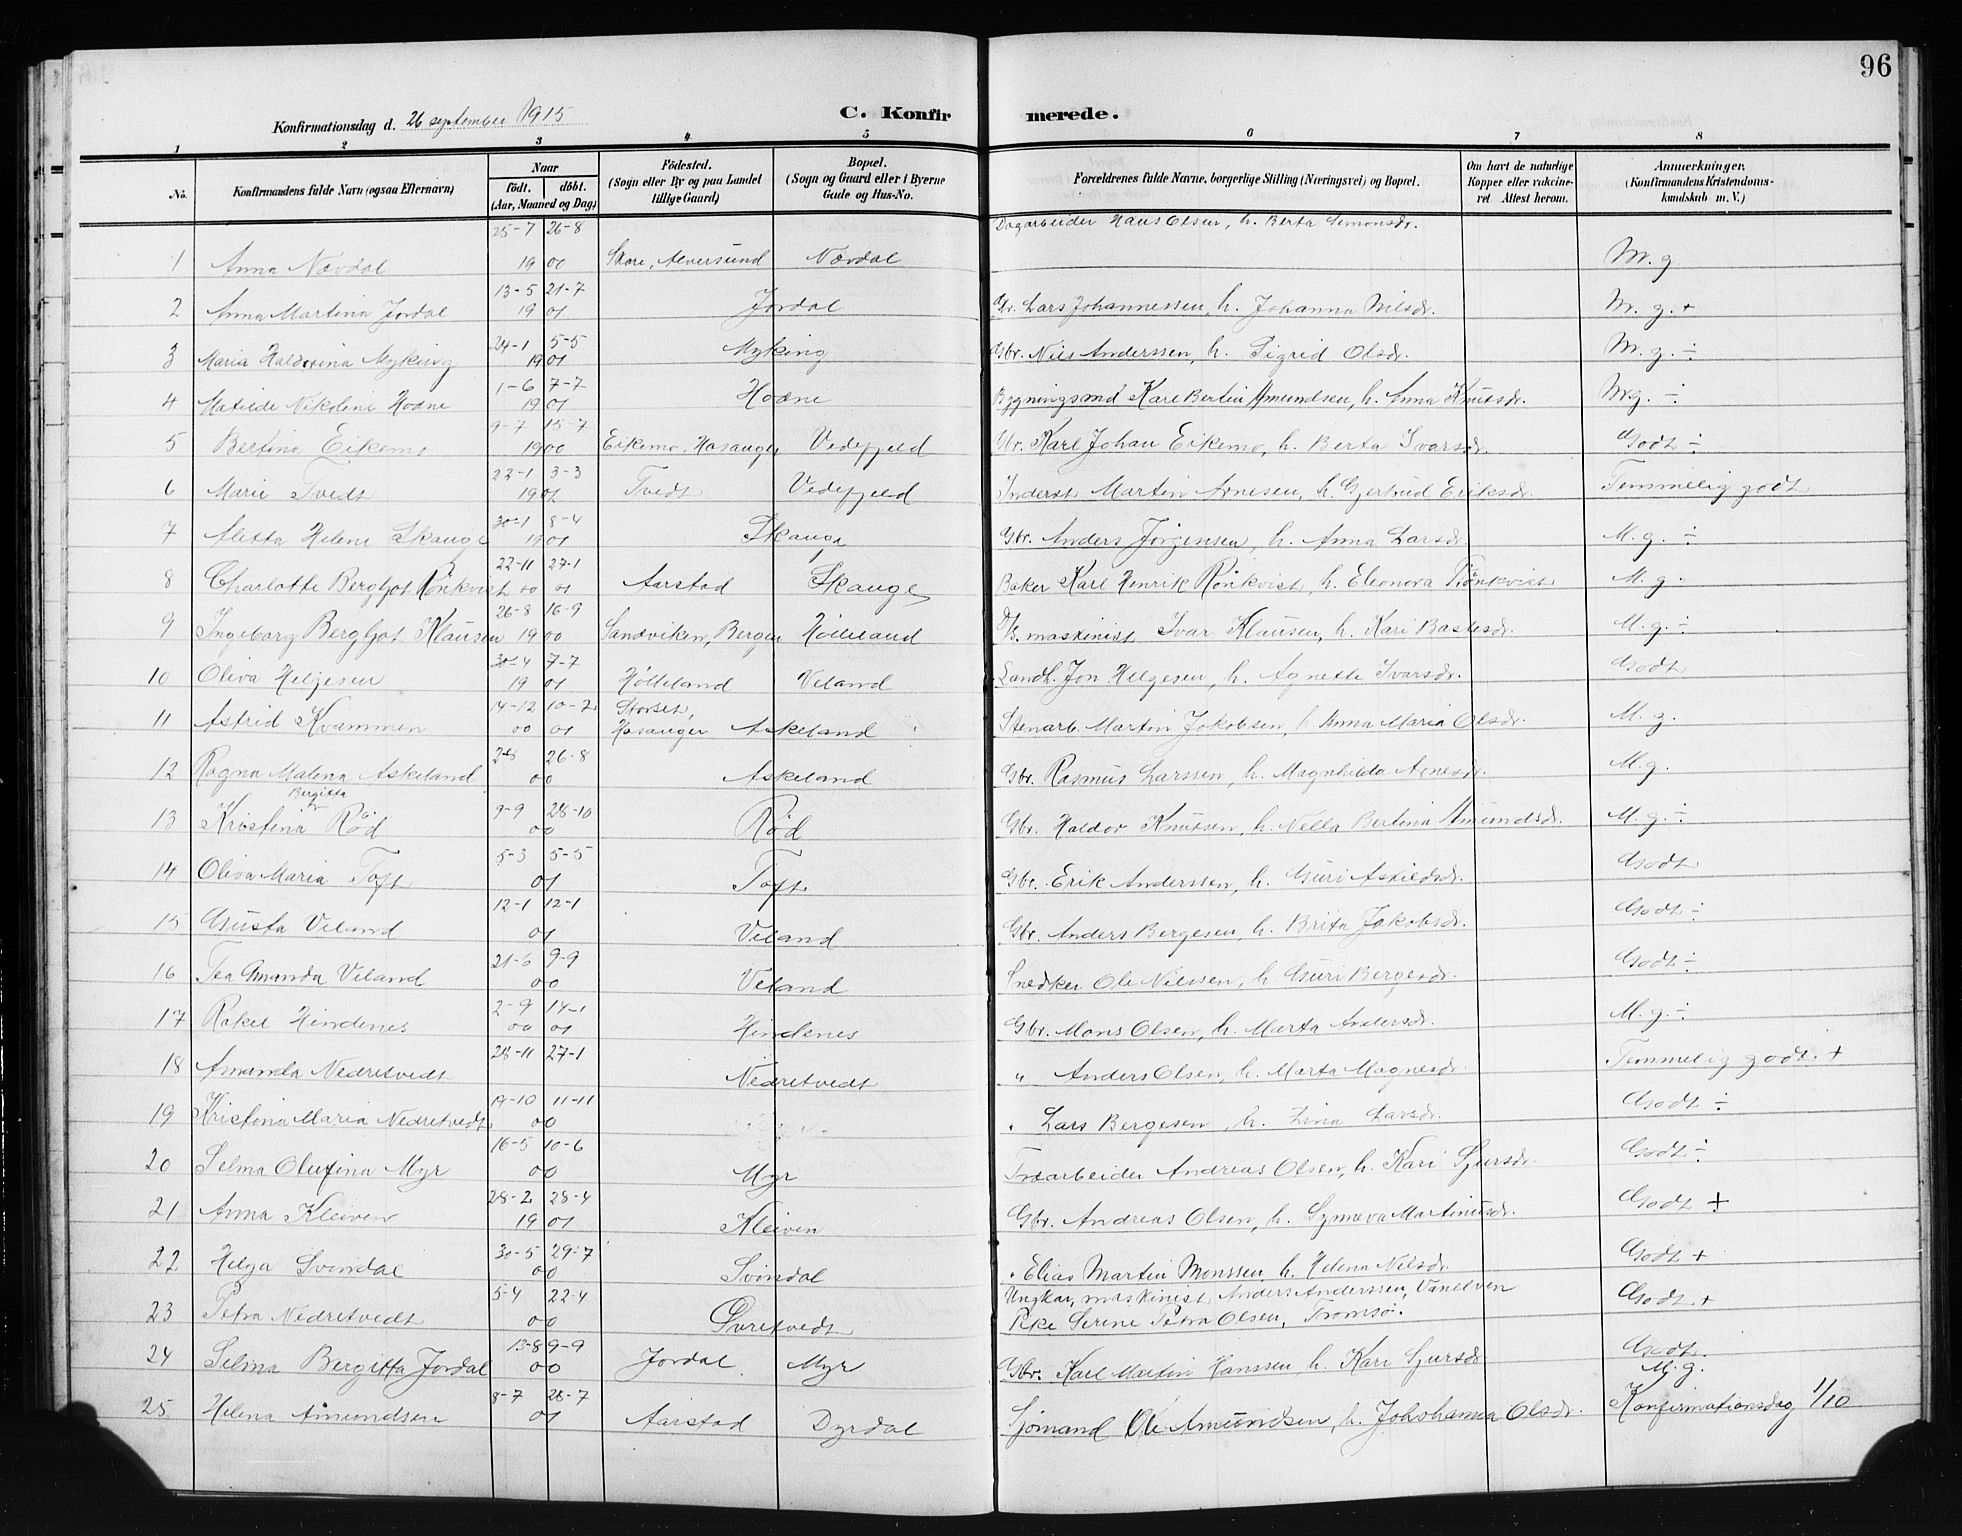 96
Konfirmationsdag d. 26 september 1915 C. Konfirmerede.
1 2 3 4 5 6 7 8
No. Konfirmandens fulde Navn (ogsaa Efternavn) Naar født. døbt. (Aar, Maaned og Dag) Födested. (Sogn eller By og paa Landet tillige Gaard) Bopæl. (Sogn og Gaard eller i Byerne Gade og Hus-No. Forældrenes fulde Navne, borgerlige Stilling (Næringsvei) og Bopæl. Om havt de naturlige Kopper eller vaccineret Attest herom. Anmerkninger. (Konfirmandens Kristendomskundskab m. V.)
1 Anna Nævdal 25-7 26-8 19 00 Skare, Alversund Nævdal Dagarbeider Hans Olsen, h. Berta Simonsdr. M. g
2 Anna Martina Jordal 13-5 21-7 19 01 Jordal Gr. Lars Johannessen, h. Johanna Nilsdr. M. g. +
3 Maria Haldorina Myking 24-1 5-5 19 01 Myking Gbr. Nils Anderssen, h. Sigrid Olsdr. M. g. ÷
4 Matilde Nikoline Hodne 1-6 7-7 19 01 Hodne Bygningsmd Karl Bertin Amundsen, h. Anna Knutsdr. M.g. ÷
5 Bertina Eikemo 9-7 15-7 19 00 Eikemo, Hosanger Vedefjeld Gbr. Karl Johan Eikemo, h. Berta Ivarsdr. Godt ÷
6 Marie Tvedt 22-1 3-3 19 01 Tvedt Vedefjeld Inderst Martin Arnesen, h. Gjertrud Eriksdr. Temmelig godt
7 Aletta Helene Skauge 30-1 8-4 19 01 Skauge Gbr. Anders Jørgensen, h. Anna Larsdr M. g. ÷
8 Charlotte Bergljot Rönkvist 22-11 27-1 00 01 Aarstad Skauge Baker Karl Henrik Rönkvist, h. Eleonora Rönkvist M. g.
9 Ingeborg Bergljot Klausen 26-8 16-9 19 00 Sandviken, Bergen Hölleland D/S. maskinist Ivar Klausen, h. Kari Bastesdr. M. g. ÷
10 Oliva Helgesen 30-4 7-7 19 01 Hölleland Veland Landh. Jon Helgesen, h. Agnette Ivarsdr. Godt
11 Astrid Kvammen 14-12 10-2 00 01 Storset, Hosanger Askeland Stenarb. Martin Jakobsen, h. Anna Maria Olsdr. M. g.
12 Ragna Malena Askeland 26-8 00 Askeland Gbr. Rasmus Larssen, h. Magnhilda Arnesdr. M. g.
13 Kristina Bergitta Röd 9-9 28-10 00 Röd Gbr. Haldor Knutsen, h. Nella Bertina Amundsdr. M. g. ÷
14 Oliva Maria Toft 5-3 5-5 01 Toft Gbr. Erik Anderssen, h. Guri Askildsdr. Godt
15 Gusta Veland 12-1 12-1 01 Veland Gbr. Anders Bergesen, h. Brita Jakobsdr. Godt ÷
16 Tea Amanda Veland 21-6 9-9 00 Veland Snedker Ole Nilssen, h. Guri Bergesdr. Godt ÷
17 Rakel Hindenes 2-9 14-1 00 01 Hindenes Gbr. Mons Olsen, h. Marta Andersdr. M. g. ÷
18 Amanda Nedretvedt 28-11 27-1 Nedretvedt " Anders Olsen, h. Marta Magnesdr. Temmelig godt. +
19 Kristina Maria Nedretvedt 19-10 11-11 00 " Lars Bergesen, h. Lina Larsdr. Godt ÷
20 Selma Olufina Myr 16-5 10-6 00 Myr Træarbeider Andreas Olsen, h. Kari Sjursdr. Godt ÷
21 Anna Kleiven 28-2 28-4 19 01 Kleiven Gbr. Andreas Olsen, h. Synneva Martinusdr. Godt +
22 Helga Svindal 30-5 29-7 00 Svindal " Elias Martin Monssen, h. Helena Nilsdr. Godt +
23 Petra Nedretvedt 5-4 22-4 00 Øvretvedt Ungkar, maskinist Anders Anderssen, Vanelven Pike Serene Petra Olsen, Tromsø. Godt +
24 Selma Bergitta Jordal 13-8 9-9 00 Jordal Myr Gbr. Karl Martin Hanssen, h. Kari Sjursdr Godt.
25 Helena Amundsen 8-7 28-7 01 Aarstad Dyrdal Sjömand Ole Amundsen, h. Johohanna Olsdr. M. g. Konfirmationsdag 1/10